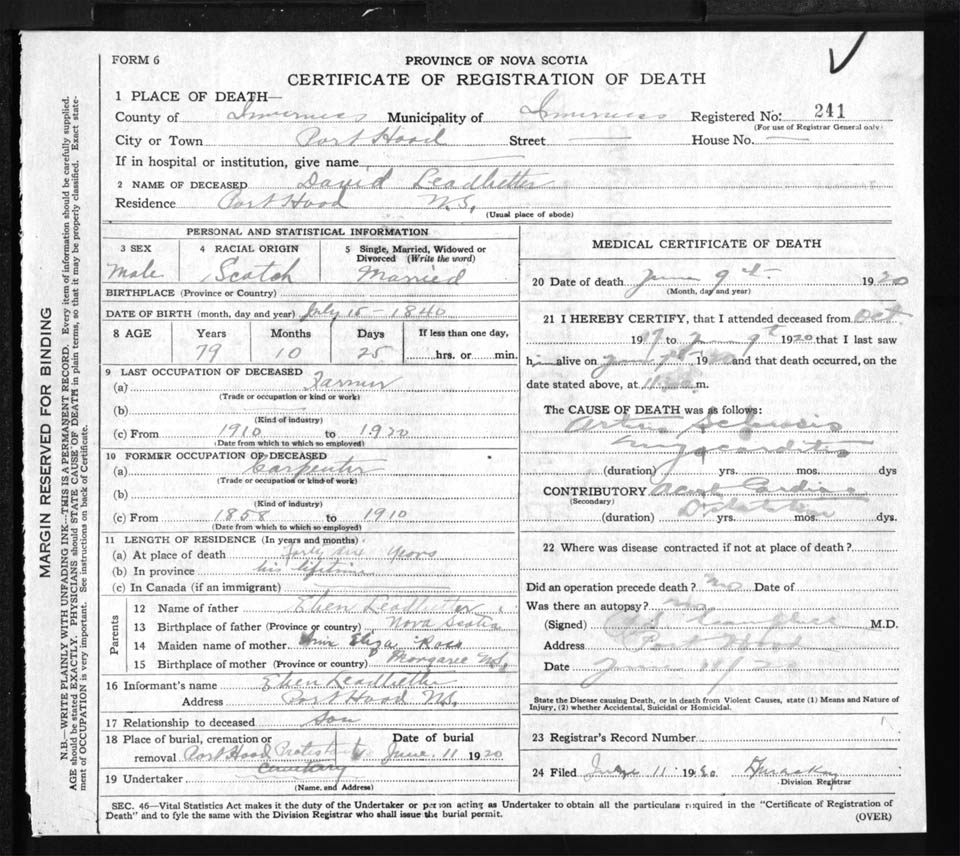 FORM 6
PROVINCE OF NOVA SCOTIA
CERTIFICATE OF REGISTRATION OF DEATH
1 PLACE OF DEATH—
County of Inverness Municipality of Inverness Registered No: 241
(For use of Registrar General only)
City or Town Port Hood Street — House No. —
If in hospital or institution, give name
2 NAME OF DECEASED David Leadbetter
Residence Port Hood N.S.
(Usual place of abode)
PERSONAL AND STATISTICAL INFORMATION
3 SEX 4 RACIAL ORIGIN 5 Single, Married, Widowed or Divorced (Write the word)
Male Scotch Married
BIRTHPLACE (Province or Country)
DATE OF BIRTH (month, day and year) July 15 – 1840
8 AGE Years Months Days If less than one day,
79 10 25 hrs. or min.
9 LAST OCCUPATION OF DECEASED
(a) Farmer
(Trade or occupation or kind or work)
(b)
(Kind of industry)
(c) From 1910 to 1920
(Date from which to which so employed)
10 FORMER OCCUPATION OF DECEASED
(a) Carpenter
(Trade or occupation or kind of work)
(b)
(Kind of industry)
(c) From 1858 to 1910
(Date from which to which so employed)
11 LENGTH OF RESIDENCE (In years and months)
(a) At place of death forty six years
(b) In province his lifetime
(c) In Canada (if an immigrant)
Parents
12 Name of father Eben Leadbetter
13 Birthplace of father (Province or country) Nova Scotia
14 Maiden name of mother Ann Eliza Ross
15 Birthplace of mother (Province or country) Margaree N.S.
16 Informant's name Eben Leadbetter
Address Port Hood N.S.
17 Relationship to deceased Son
18 Place of burial, cremation or removal Port Hood Protestant Cemetary Date of burial June 11 1920
19 Undertaker
(Name, and Address)
MEDICAL CERTIFICATE OF DEATH
20 Date of death June 9th 1920
(Month, day and year)
21 I HEREBY CERTIFY, that I attended deceased from Oct.
1917 to June 9th 1920 that I last saw
h alive on June 1920 and that death occurred, on the
date stated above, at 11 m.
The CAUSE OF DEATH was as follows:
Arterio Sclerosis
Myocarditis
(duration) yrs. mos. dys
CONTRIBUTORY Acute Cardiac
(Secondary) Dilatation
(duration) yrs. mos. dys.
22 Where was disease contracted if not at place of death?
Did an operation precede death? no Date of
Was there an autopsy? no
(Signed) M.D.
Address Port Hood
Date June 11/20
State the Disease causing Death, or in death from Violent Causes, state (1) Means and Nature of
Injury, (2) whether Accidental, Suicidal or Homicidal.
23 Registrar's Record Number
24 Filed June 11 1920
Division Registrar
SEC. 46—Vital Statistics Act makes it the duty of the Undertaker or person acting as Undertaker to obtain all the particulars required in the "Certificate of Registration of
Death" and to fyle the same with the Division Registrar who shall issue the burial permit.
(OVER)
MARGIN RESERVED FOR BINDING
N.B.—WRITE PLAINLY WITH UNFADING INK—THIS IS A PERMANENT RECORD. Every item of information should be carefully supplied.
AGE should be stated EXACTLY. PHYSICIANS should STATE CAUSE OF DEATH in plain terms, so that it may be properly classified. Exact state-
ment of OCCUPATION is very important. See instructions on back of Certificate.